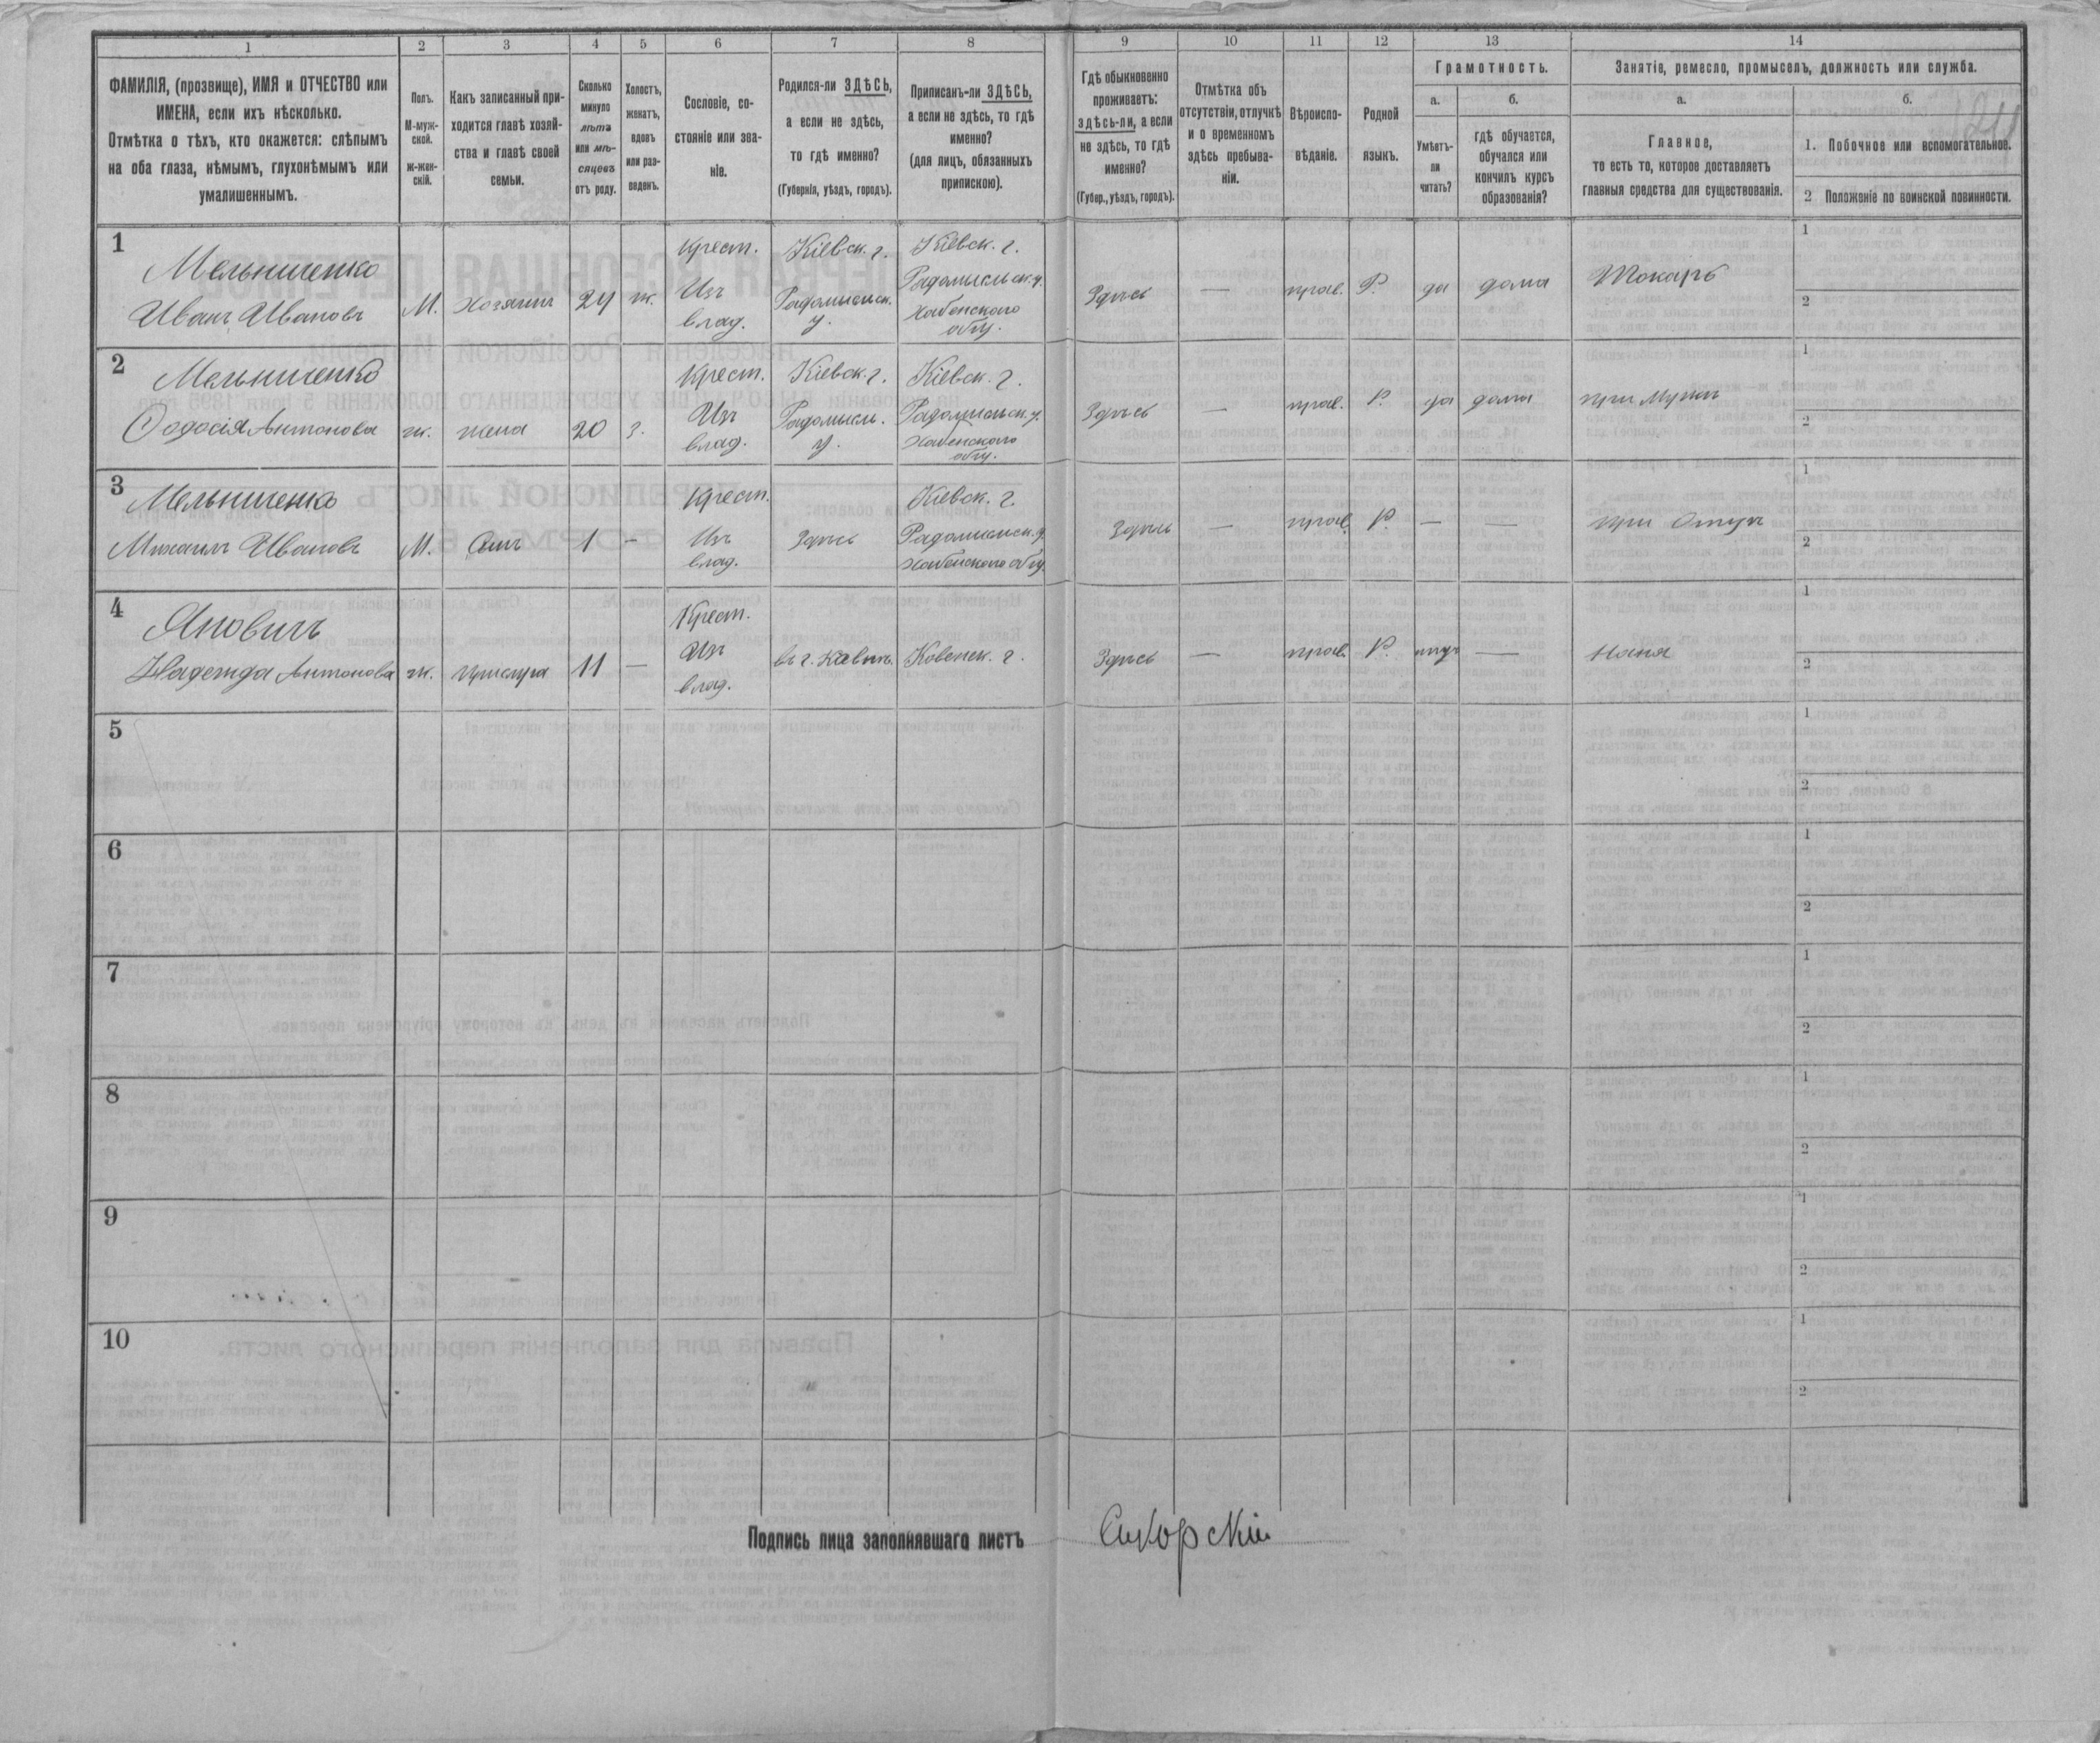 1 2 3 4 5 6 7 8 9 10 11 12 13 14
ФАМИЛІЯ, (прозвище), ИМЯ и ОТЧЕСТВО или
ИМЕНА, если ихъ нѣсколько.
Отмѣтка о тѣхъ, кто окажется: слѣпымъ
на оба глаза, нѣмымъ, глухонѣмымъ или
умалишеннымъ.
Полъ.
М-муж-
ской.
ж-жен-
скій.
Какъ записанный при-
ходится главѣ хозяй-
ства и главѣ своей
семьи.
Сколько
минуло
лѣтъ
или мѣ-
сяцевъ
отъ роду.
Холостъ,
женатъ,
вдовъ
или раз-
веденъ.
Сословіе, со-
стояніе или зва-
ніе.
Родился-ли ЗДѢСЬ,
а если не здѣсь,
то гдѣ именно?
(Губернія, уѣздъ, городъ).
Приписанъ-ли ЗДѢСЬ,
а если не здѣсь, то гдѣ
именно?
(для лицъ, обязанныхъ
припискою).
Гдѣ обыкновенно
проживаетъ:
здѣсь-ли, а если
не здѣсь, то гдѣ
именно?
(Губер., уѣздъ, городъ).
Отмѣтка объ
отсутствіи, отлучкѣ
и о временномъ
здѣсь пребыва-
ніи.
Вѣроиспо-
вѣданіе.
Родной
языкъ.
Грамотность.
а.
Умѣетъ-
ли
читать?
б.
гдѣ обучается,
обучался или
кончилъ курсъ
образованія?
Занятіе, ремесло, промыселъ, должность или служба.
а.
Главное,
то есть то, которое доставляетъ
главныя средства для существованія.
б.
1. Побочное или вспомогательное.
2 Положеніе по воинской повинности.
1
Мельниченко
Иванъ Ивановъ
М.
хозяинъ
24
ж.
Крест.
Изъ
влад.
Кіевск. г.
Радомысльск.
у.
Кіевск. г.
Радомысльск. у.
Хабенского
общ.
Здѣсь
—
прав.
Р.
да
дома
Токарь
1
2
2
Мельниченко
Ѳодосія Антонова
ж.
жена
20
з.
Крест.
Изъ
влад.
Кіевск. г.
Радомысль.
у.
Кіевск. г.
Радомысльск. у.
Хабенского
общ.
Здѣсь
—
прав.
Р.
да
дома
при Мужѣ
1
2
3
Мельниченко
Михаилъ Ивановъ
М.
Сынъ
1
—
Крест.
Изъ
влад.
Здѣсь
Кіевск. г.
Радомысльск. у.
Хабенского общ.
Здѣсь
—
прав.
Р.
—
—
при Отцѣ
1
2
4
Яновичъ
Надежда Антонова
ж.
прислуга
11
—
Крест.
Изъ
влад.
въ г.
Ковенск. г.
Здѣсь
—
прав.
Р.
—
Няня
1
2
5
1
2
6
1
2
7
1
2
8
1
2
9
1
2
10
1
2
Подпись лица заполнявшаго листъ
Сикорскій